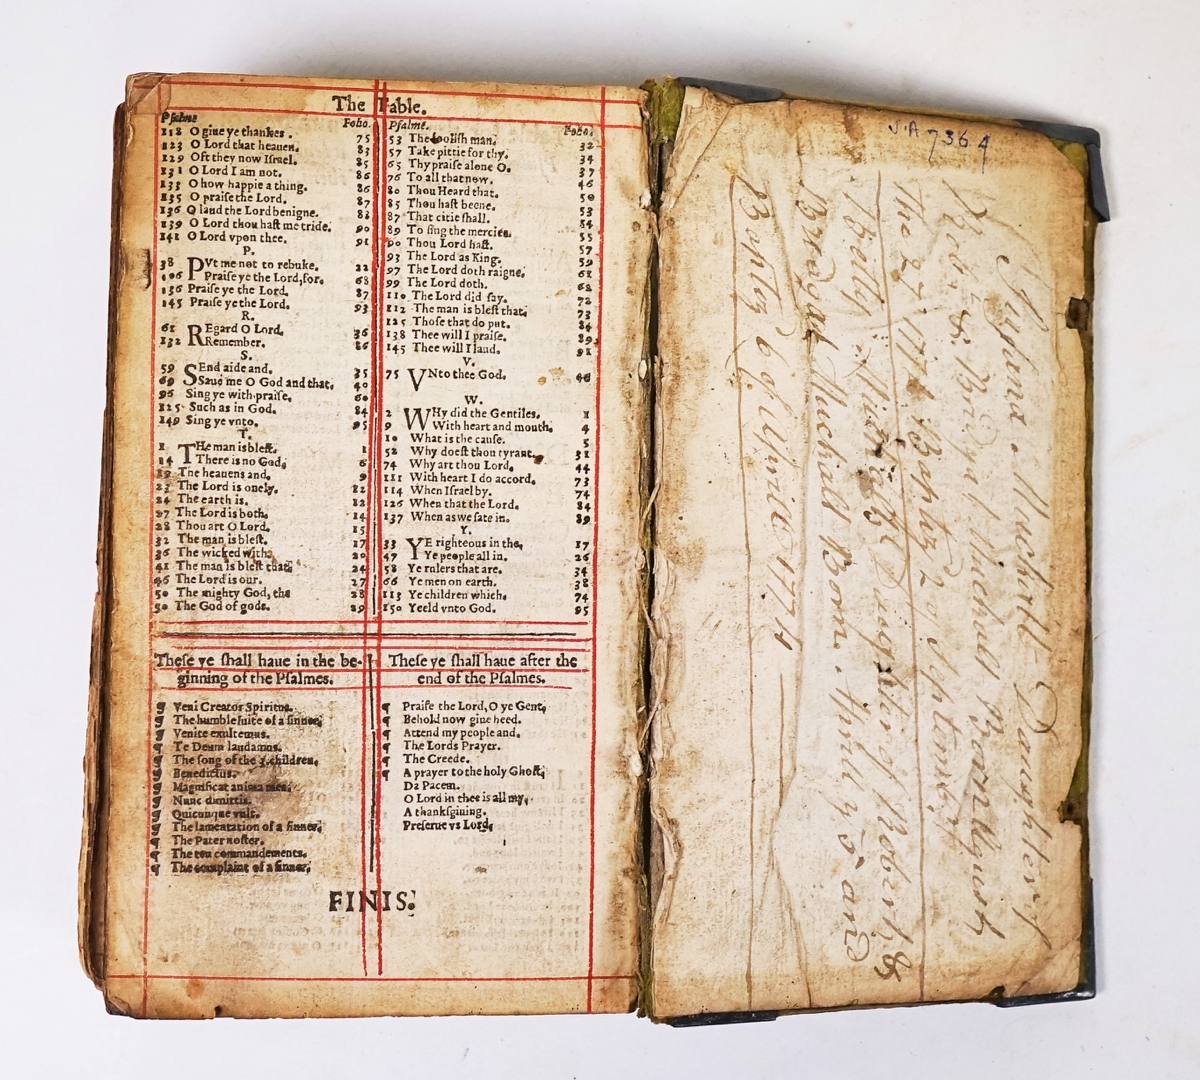 The Table.
Psalme Folio.
118 O giue ye thankes. 75
123 O Lord that heauen. 83
129 Oft they now Israel. 85
131 O Lord I am not. 86
133 O how happie a thing. 86
135 O praise the Lord. 87
136 O laud the Lord benigne. 88
139 O Lord thou hast me tride. 90
141 O Lord vpon thee. 91
P.
38 PVt me not to rebuke. 22
106 Praise ye the Lord, for. 68
136 Praise ye the Lord. 87
145 Praise ye the Lord. 93
R.
61 REgard O Lord. 36
132 Remember. 86
S.
59 SEnd aide and. 35
69 Saue me O God and that. 40
96 Sing ye with praise. 60
125 Such as in God. 84
149 Sing ye vnto. 95
T.
1 THe man is blest. 1
14 There is no God. 6
19 The heauens and. 9
23 The Lord is onely. 12
24 The earth is. 12
27 The Lord is both. 14
28 Thou art O Lord. 15
32 The man is blest. 17
36 The wicked with. 20
41 The man is blest that. 24
46 The Lord is our. 27
50 The mighty God, the 28
50 The God of gods. 29
Psalme. Folio.
53 The foolish man. 32
57 Take pittie for thy. 34
65 Thy praise alone O. 37
76 To all that now. 46
80 Thou Heard that. 50
85 Thou hast beene. 53
87 That citie shall. 54
89 To sing the mercies. 55
90 Thou Lord hast. 57
93 The Lord as King. 59
97 The Lord doth raigne. 61
99 The Lord doth. 62
110 The Lord did say. 72
112 The man is blest that. 73
125 Those that do put. 84
138 Thee will I praise. 89
145 Thee will I laud. 91
V.
75 VNto thee God. 46
W.
2 WHy did the Gentiles. 1
9 With heart and mouth. 4
10 What is the cause. 5
52 Why doest thou tyrant. 31
74 Why art thou Lord. 44
111 With heart I do accord. 73
114 When Israel by. 74
126 When that the Lord. 84
137 When as we sate in. 89
Y.
33 YE righteous in the. 17
47 Ye people all in. 26
58 Ye rulers that are. 34
66 Ye men on earth. 38
113 Ye children which. 74
150 Yeeld vnto God. 95
These ye shall haue in the be-
ginning of the Psalmes.
¶ Veni Creator Spiritus.
¶ The humble suite of a sinner.
¶ Venite exultemus.
¶ Te Deum laudamus.
¶ The song of the 3. children.
¶ Benedictus.
¶ Magnificat anima mea.
¶ Nunc dimittis.
¶ Quicunque vult.
¶ The lamentation of a sinner.
¶ The Pater noster.
¶ The ten commandements.
¶ The complaint of a sinner.
These ye shall haue after the
end of the Psalmes.
¶ Praise the Lord, O ye Gent.
¶ Behold now giue heed.
¶ Attend my people and.
¶ The Lords Prayer.
¶ The Creede.
¶ A prayer to the holy Ghost.
Da Pacem.
O Lord in thee is all my.
A thanksgiuing.
Preserue vs Lord.
FINIS.
7364
Daughter of
Bridget Muchall Born
The 27
Betty Daughter of Robert &
Bridget Muchall Born
6 of 1774